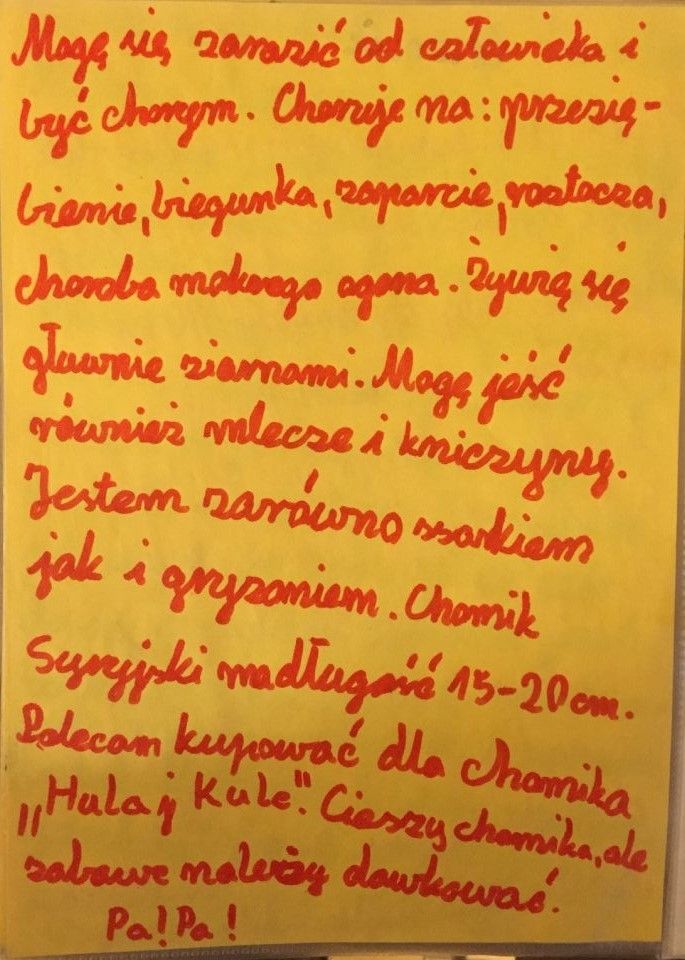 Mogę się zarazić od człowieka i
być chorym. Choruje na: przezię-
bienie, biegunka, zaparcie, roztocza,
choroba mokrego ogona. Żywię się
głównie ziarnami. Mogę jeść
również mlecze i kniczynę.
Jestem zarówno ssakiem
jak i gryzoniem. Chomik
Syryjski madługość 15-20 cm.
Polecam kupować dla chomika
„Hulaj Kule". Cieszy chomika, ale
zabawe należy dawkować.
Pa! Pa!